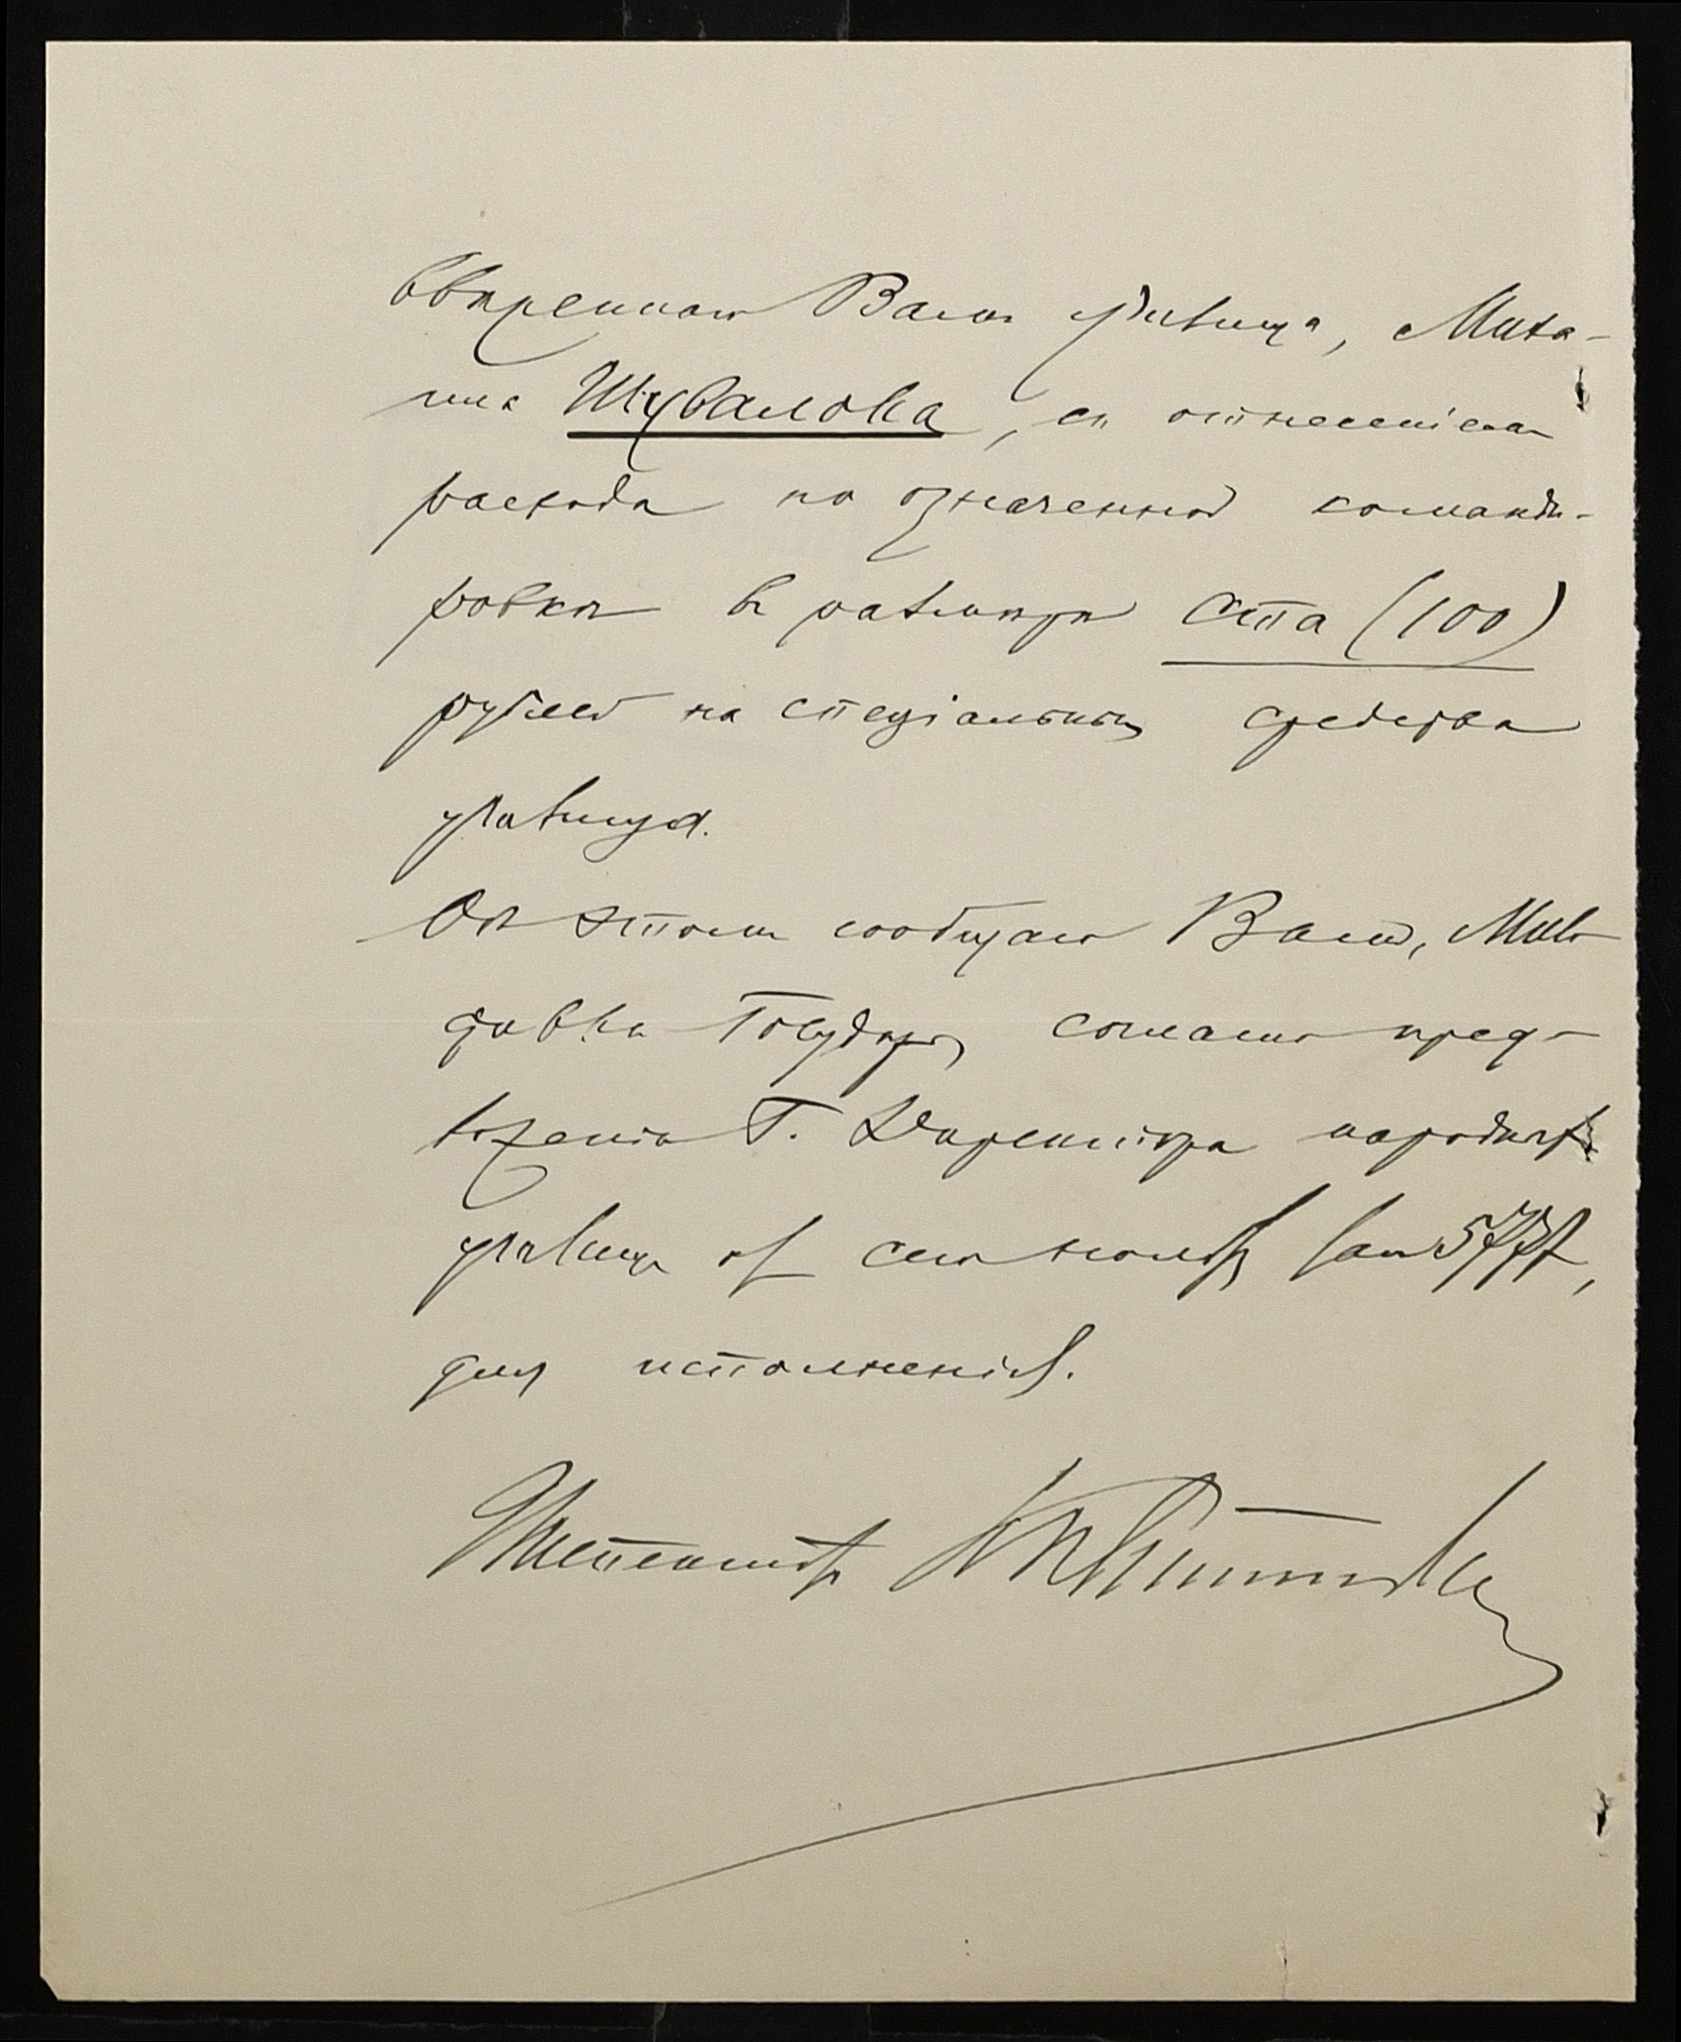 ввѣреннаго Вамъ училища, Миха-
ила Шувалова, съ отнесеніемъ
расхода по означенной команди-
ровкѣ въ размѣрѣ ста (100)
рублей на спеціальныя средства
училища.
Объ этомъ сообщаю Вамъ, Мило-
стивый Государь, согласно пред-
ложенія Г. Директора народныхъ
училищъ отъ сего
для исполненія.
Инспекторъ